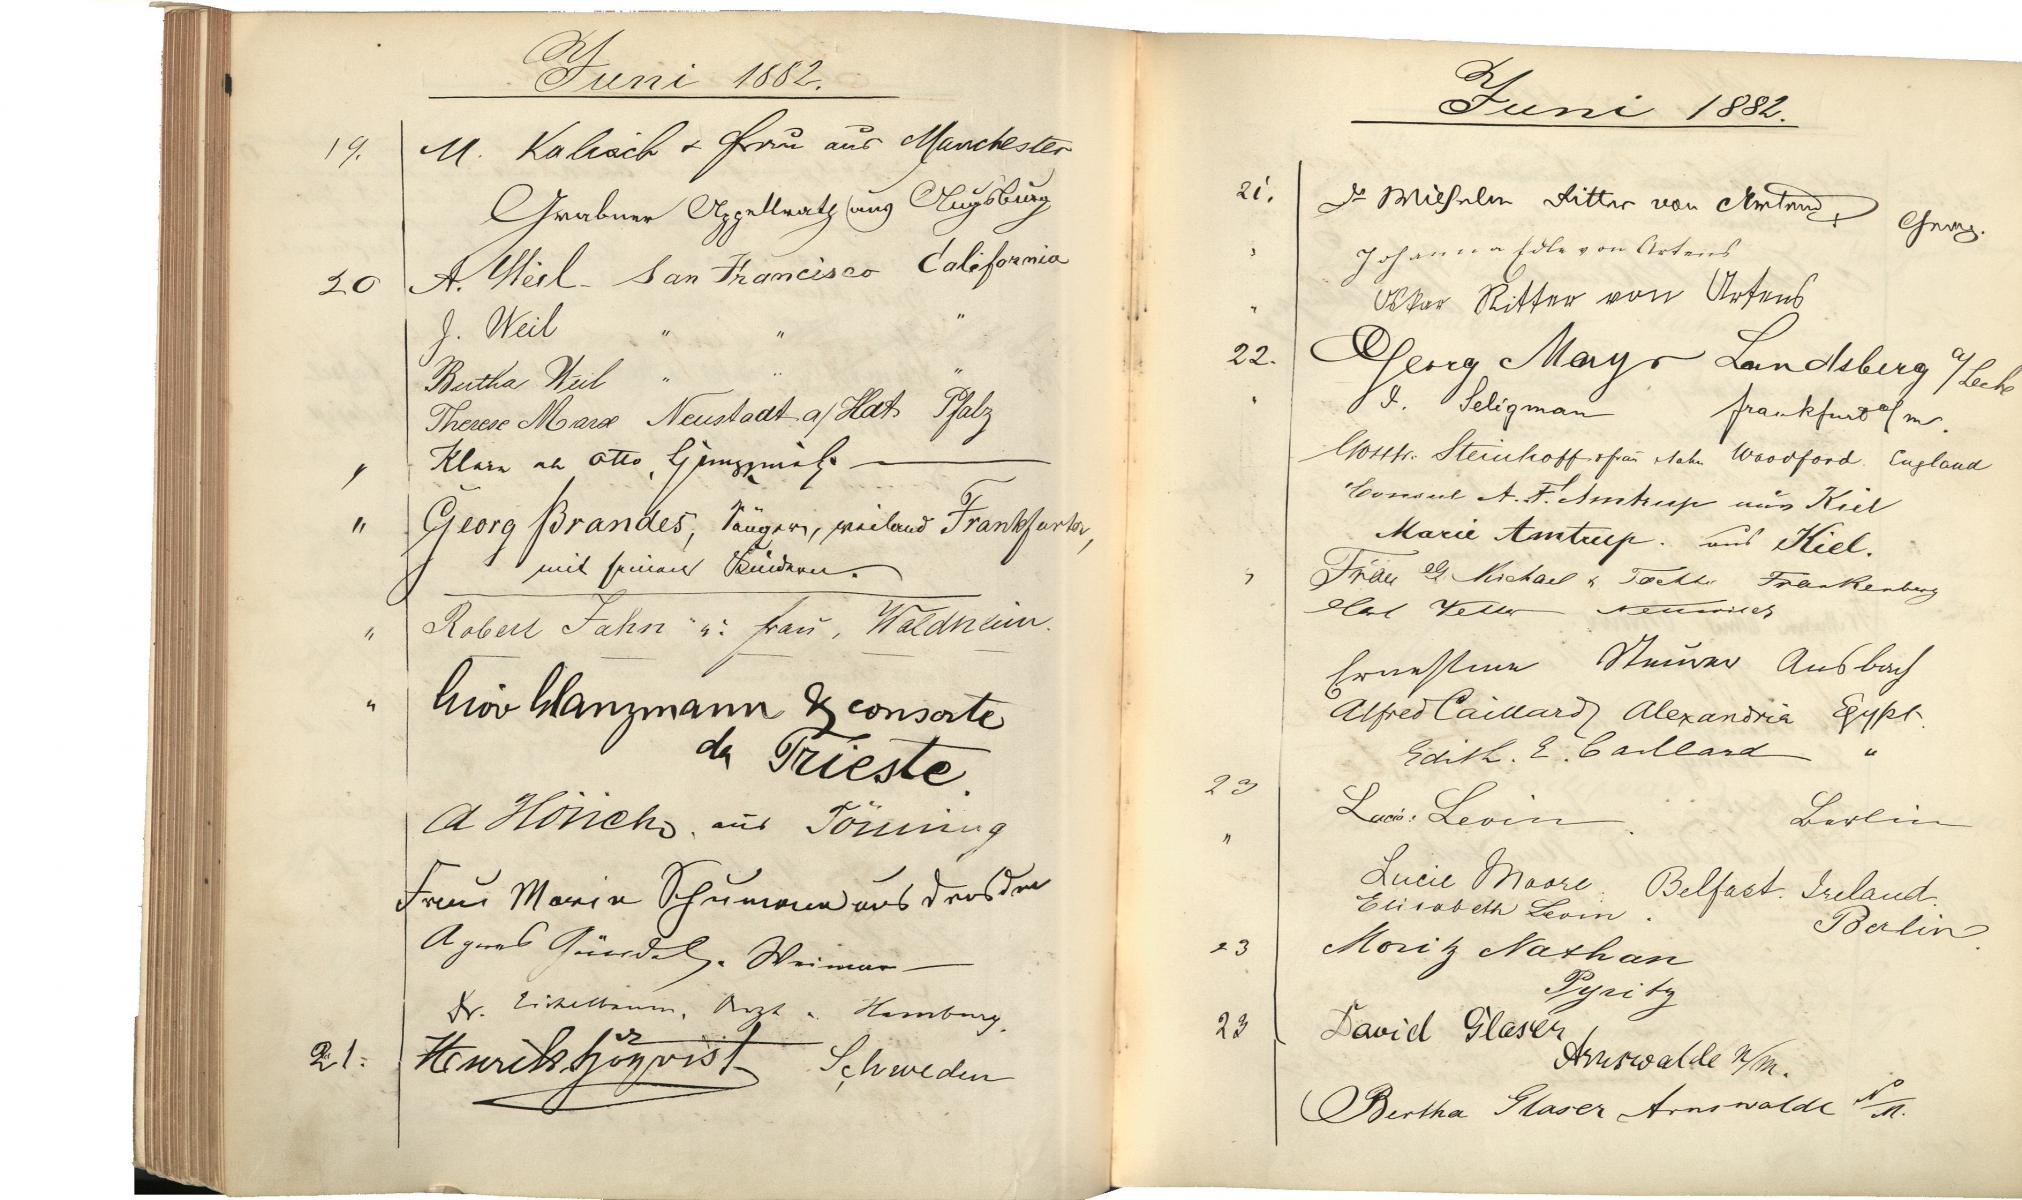 Juni 1882.
19. M. Kalisch & Frau aus Manchester
Grabner Appellrath aus Augsburg
20 A. Weil - San Francisco California
J. Weil " " "
Bertha Weil " " "
Therese Marx Neustadt a/Hdt Pfalz
" Klara Otto
" Georg Brandes, Sänger, weiland Frankfurter,
mit seinen Kindern.
" Robert Jahn u: Frau, Waldheim.
" Giov Glanzmann & consorte
da Trieste.
A Hönck, aus Tönning
Frau Maria Schumann aus Dresden
Agnes Weimar
Dr. Eichelbaum, Arzt a. Hamburg.
21. Henrik Sjöqvist Schweden
Juni 1882.
21. Dr Wilhelm Ritter von Artens, Graz.
" Johanna Edle von Artens
" Oskar Ritter von Artens
22. Georg Mayr Landsberg a/Lech
" J. Seligman Frankfurt a/m.
Gottfr. Steinhoff Frau Woodford England
Consul A. F. Amtrup aus Kiel
Marie Amtrup. aus Kiel.
" Frau Michael & Tochter Frankenberg
Ernestine Steurer Ansbach
Alfred Caillard Alexandria Egypt.
Edith. E. Caillard "
23 Louis Levin. Berlin
" Lucie Moore. Belfast. Ireland.
Elisabeth Levin. Berlin.
23 Moritz Nathan
Pyritz
23 David Glaser
Arnswalde N/M.
Bertha Glaser Arnswalde N/M.